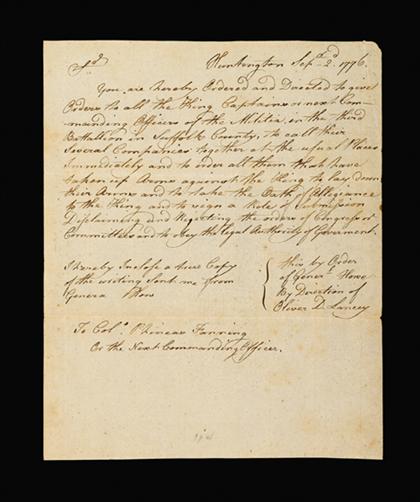 Sr. Huntington Sepr. 2d. 1776.
You are hereby Ordered and Directed to give
Orders to all the King Captains or next Com-
manding Officers of the Militia, in the third
Battallion in Suffolk County, to call their
Several Companies together at the usual Places
Immediately and to order all them that have
taken up Arms against the King to lay down
their Arms and to take the Oath of Allegiance
to the King and to sign a Role of Submission
Disclaiming and Rejecting the orders of Congress or
Committees and to obey the legal Authority of Goverment.
I hereby Inclose a true Copy
of the writing Sent me from
Genera How
this by Order
of Generl. Howe
By Direction of
Oliver D. Lancey
To Colo. Phineas Fanning
Or the Next Commanding Officer.